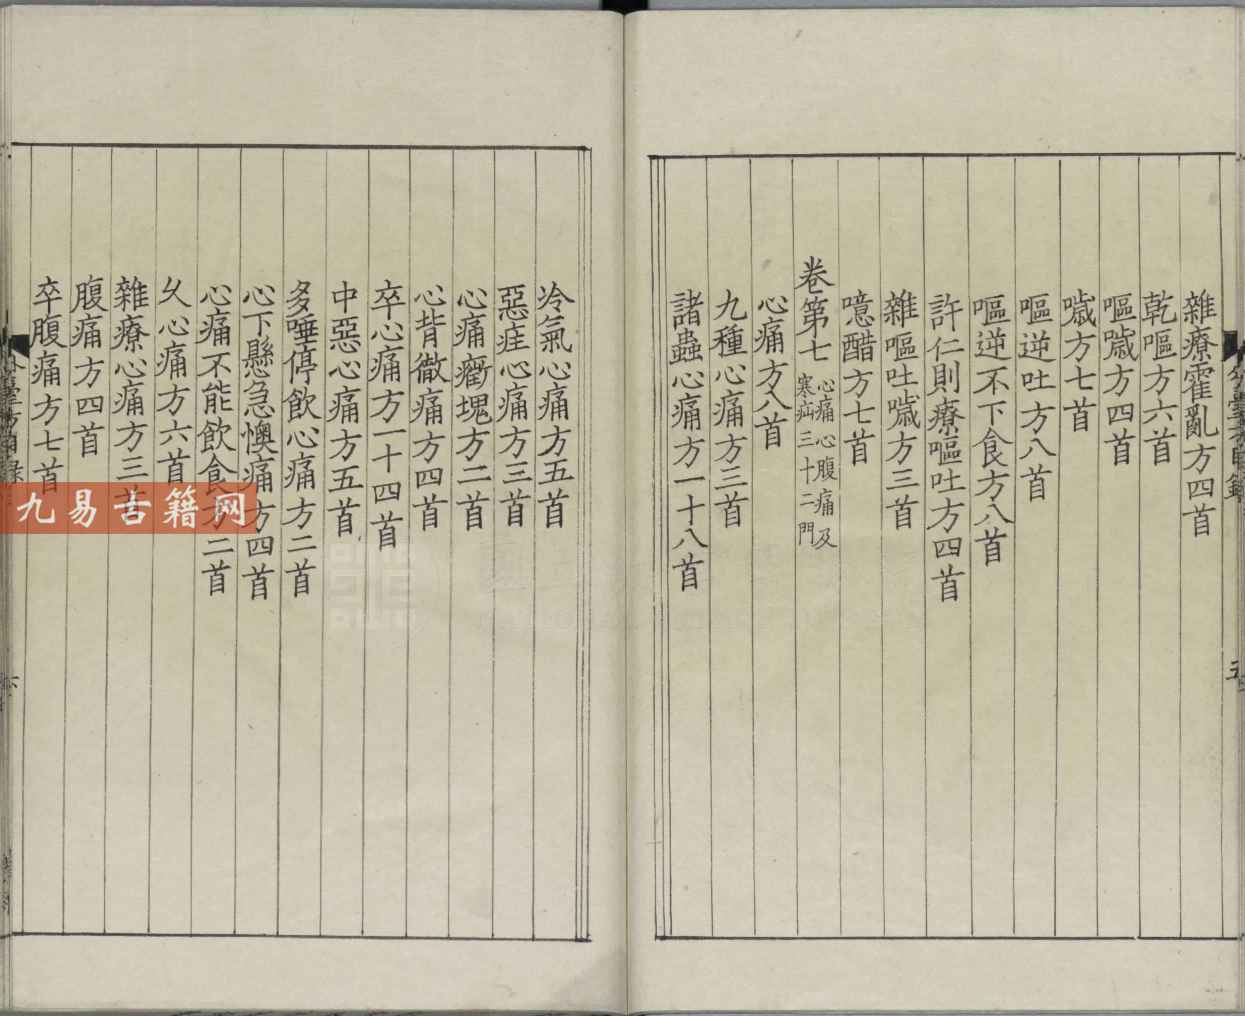 雜療霍亂方四首
乾嘔方六首
嘔噦方四首
噦方七首
嘔逆吐方八首
嘔逆不下食方八首
許仁則療嘔吐方四首
雜嘔吐噦方三首
噫醋方七首
卷第七 心痛心腹痛及寒疝三十二門
心痛方八首
九種心痛方三首
諸蟲心痛方一十八首
冷氣心痛方五首
惡疰心痛方三首
心痛癥塊方二首
心背徹痛方四首
卒心痛方一十四首
中惡心痛方五首
多唾停飲心痛方二首
心下懸急懊痛方四首
心痛不能飲食方二首
久心痛方六首
雜療心痛方三首
腹痛方四首
卒腹痛方七首
九易古籍网